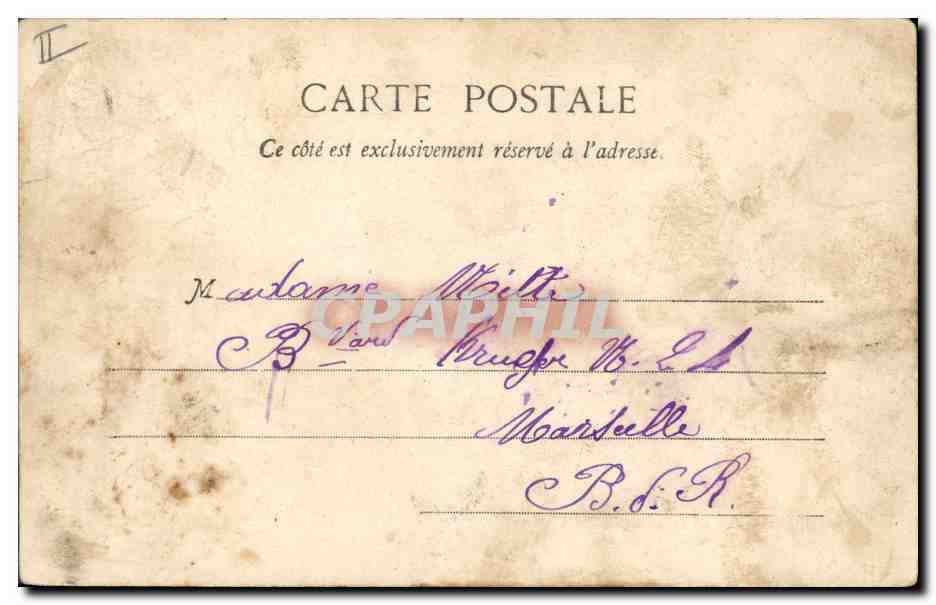 II
CARTE POSTALE
Ce côté est exclusivement réservé à l'adresse.
Madame
CPAPHIL
Bvard Kruger N. 21
Marseille
B. d. R.